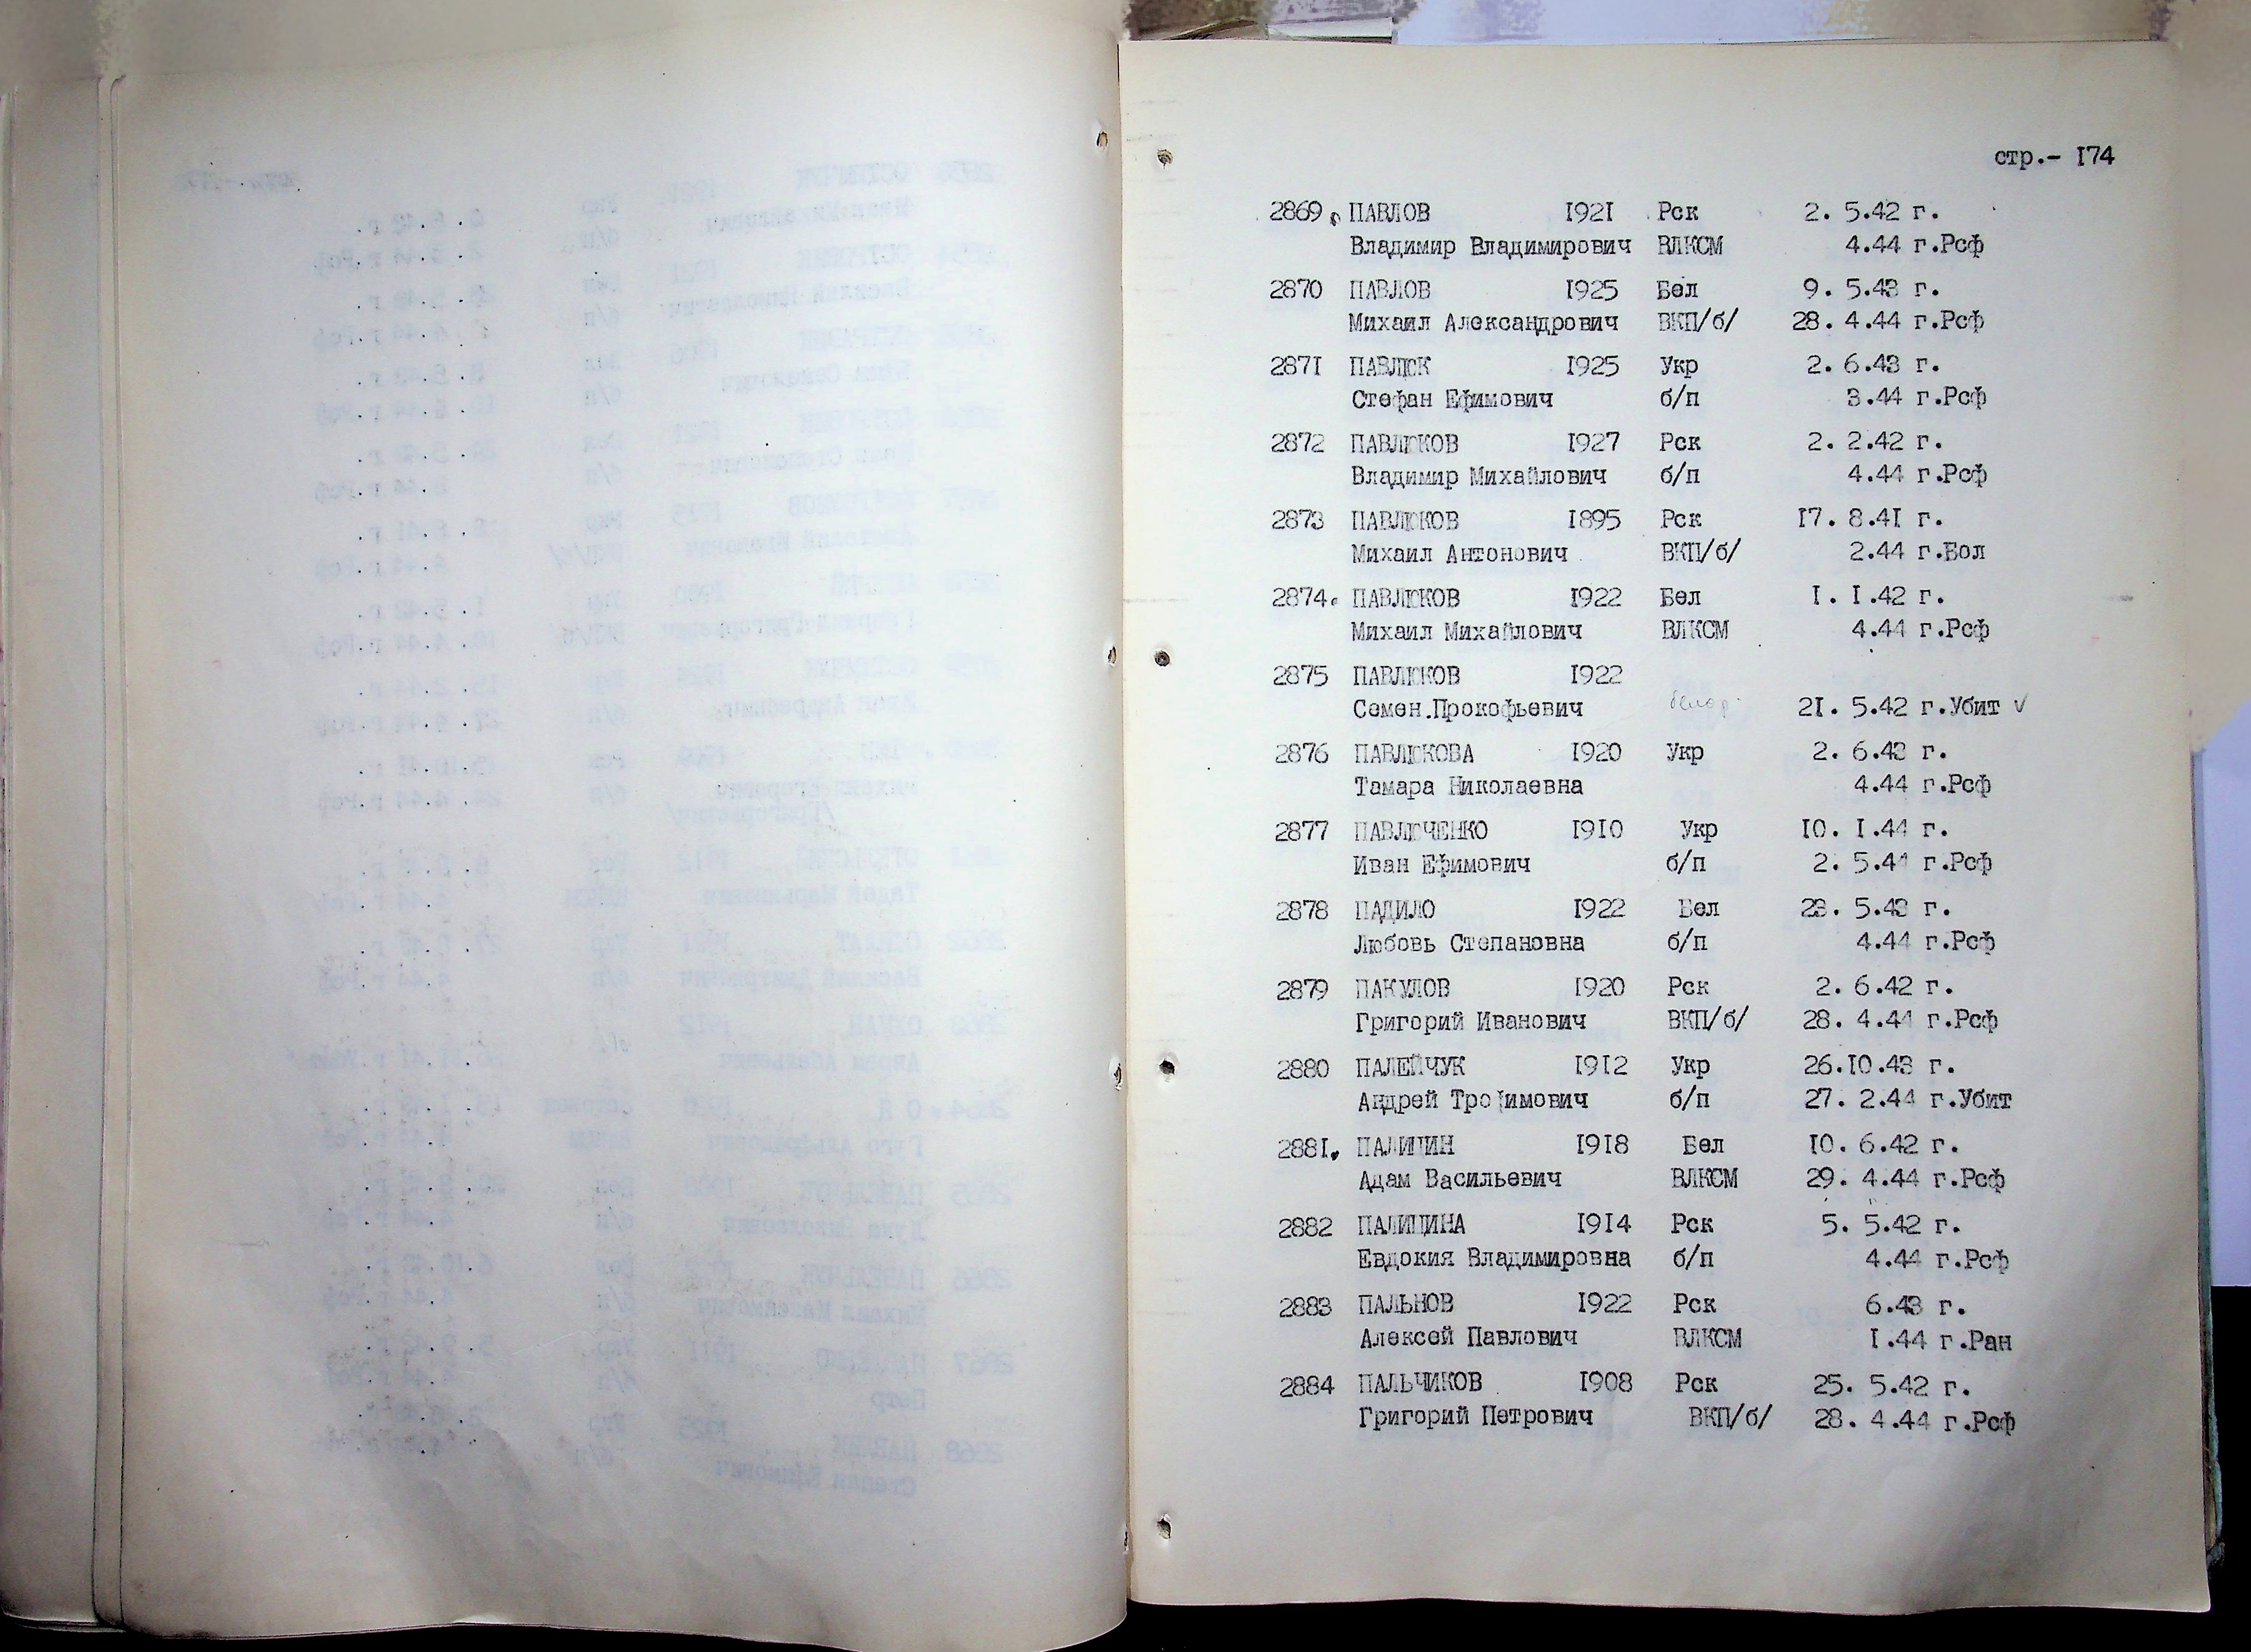 стр.- I74
2869. ПАВЛОВ I92I Рск 2. 5.42 г.
Владимир Владимирович ВЛКСМ 4.44 г.Рсф
2870 ПАВЛОВ I925 Бел 9. 5.43 г.
Михаил Александрович ВКП/б/ 28. 4.44 г.Рсф
287I ПАВЛЮК I925 Укр 2. 6.43 г.
Стефан Ефимович б/п 3.44 г.Рсф
2872 ПАВЛЮКОВ I927 Рск 2. 2.42 г.
Владимир Михайлович б/п 4.44 г.Рсф
2873 ПАВЛЮКОВ I895 Рск I7. 8.4I г.
Михаил Антонович ВКП/б/ 2.44 г.Бол
2874. ПАВЛЮКОВ I922 Бел I. I.42 г.
Михаил Михайлович ВЛКСМ 4.44 г.Рсф
2875 ПАВЛЮКОВ I922
Семен.Прокофьевич белор. 2I. 5.42 г.Убит ✓
2876 ПАВЛЮКОВА I920 Укр 2. 6.43 г.
Тамара Николаевна 4.44 г.Рсф
2877 ПАВЛЮЧЕНКО I9I0 Укр I0. I.44 г.
Иван Ефимович б/п 2. 5.44 г.Рсф
2878 ПАДИЛО I922 Бел 23. 5.43 г.
Любовь Степановна б/п 4.44 г.Рсф
2879 ПАКУЛОВ I920 Рск 2. 6.42 г.
Григорий Иванович ВКП/б/ 28. 4.44 г.Рсф
2880 ПАЛЕЙЧУК I9I2 Укр 26.I0.43 г.
Андрей Трофимович б/п 27. 2.44 г.Убит
288I. ПАЛИЦИН I9I8 Бел I0. 6.42 г.
Адам Васильевич ВЛКСМ 29. 4.44 г.Рсф
2882 ПАЛИЦИНА I9I4 Рск 5. 5.42 г.
Евдокия Владимировна б/п 4.44 г.Рсф
2883 ПАЛЬНОВ I922 Рск 6.43 г.
Алексей Павлович ВЛКСМ I.44 г.Ран
2884 ПАЛЬЧИКОВ I908 Рск 25. 5.42 г.
Григорий Петрович ВКП/б/ 28. 4.44 г.Рсф